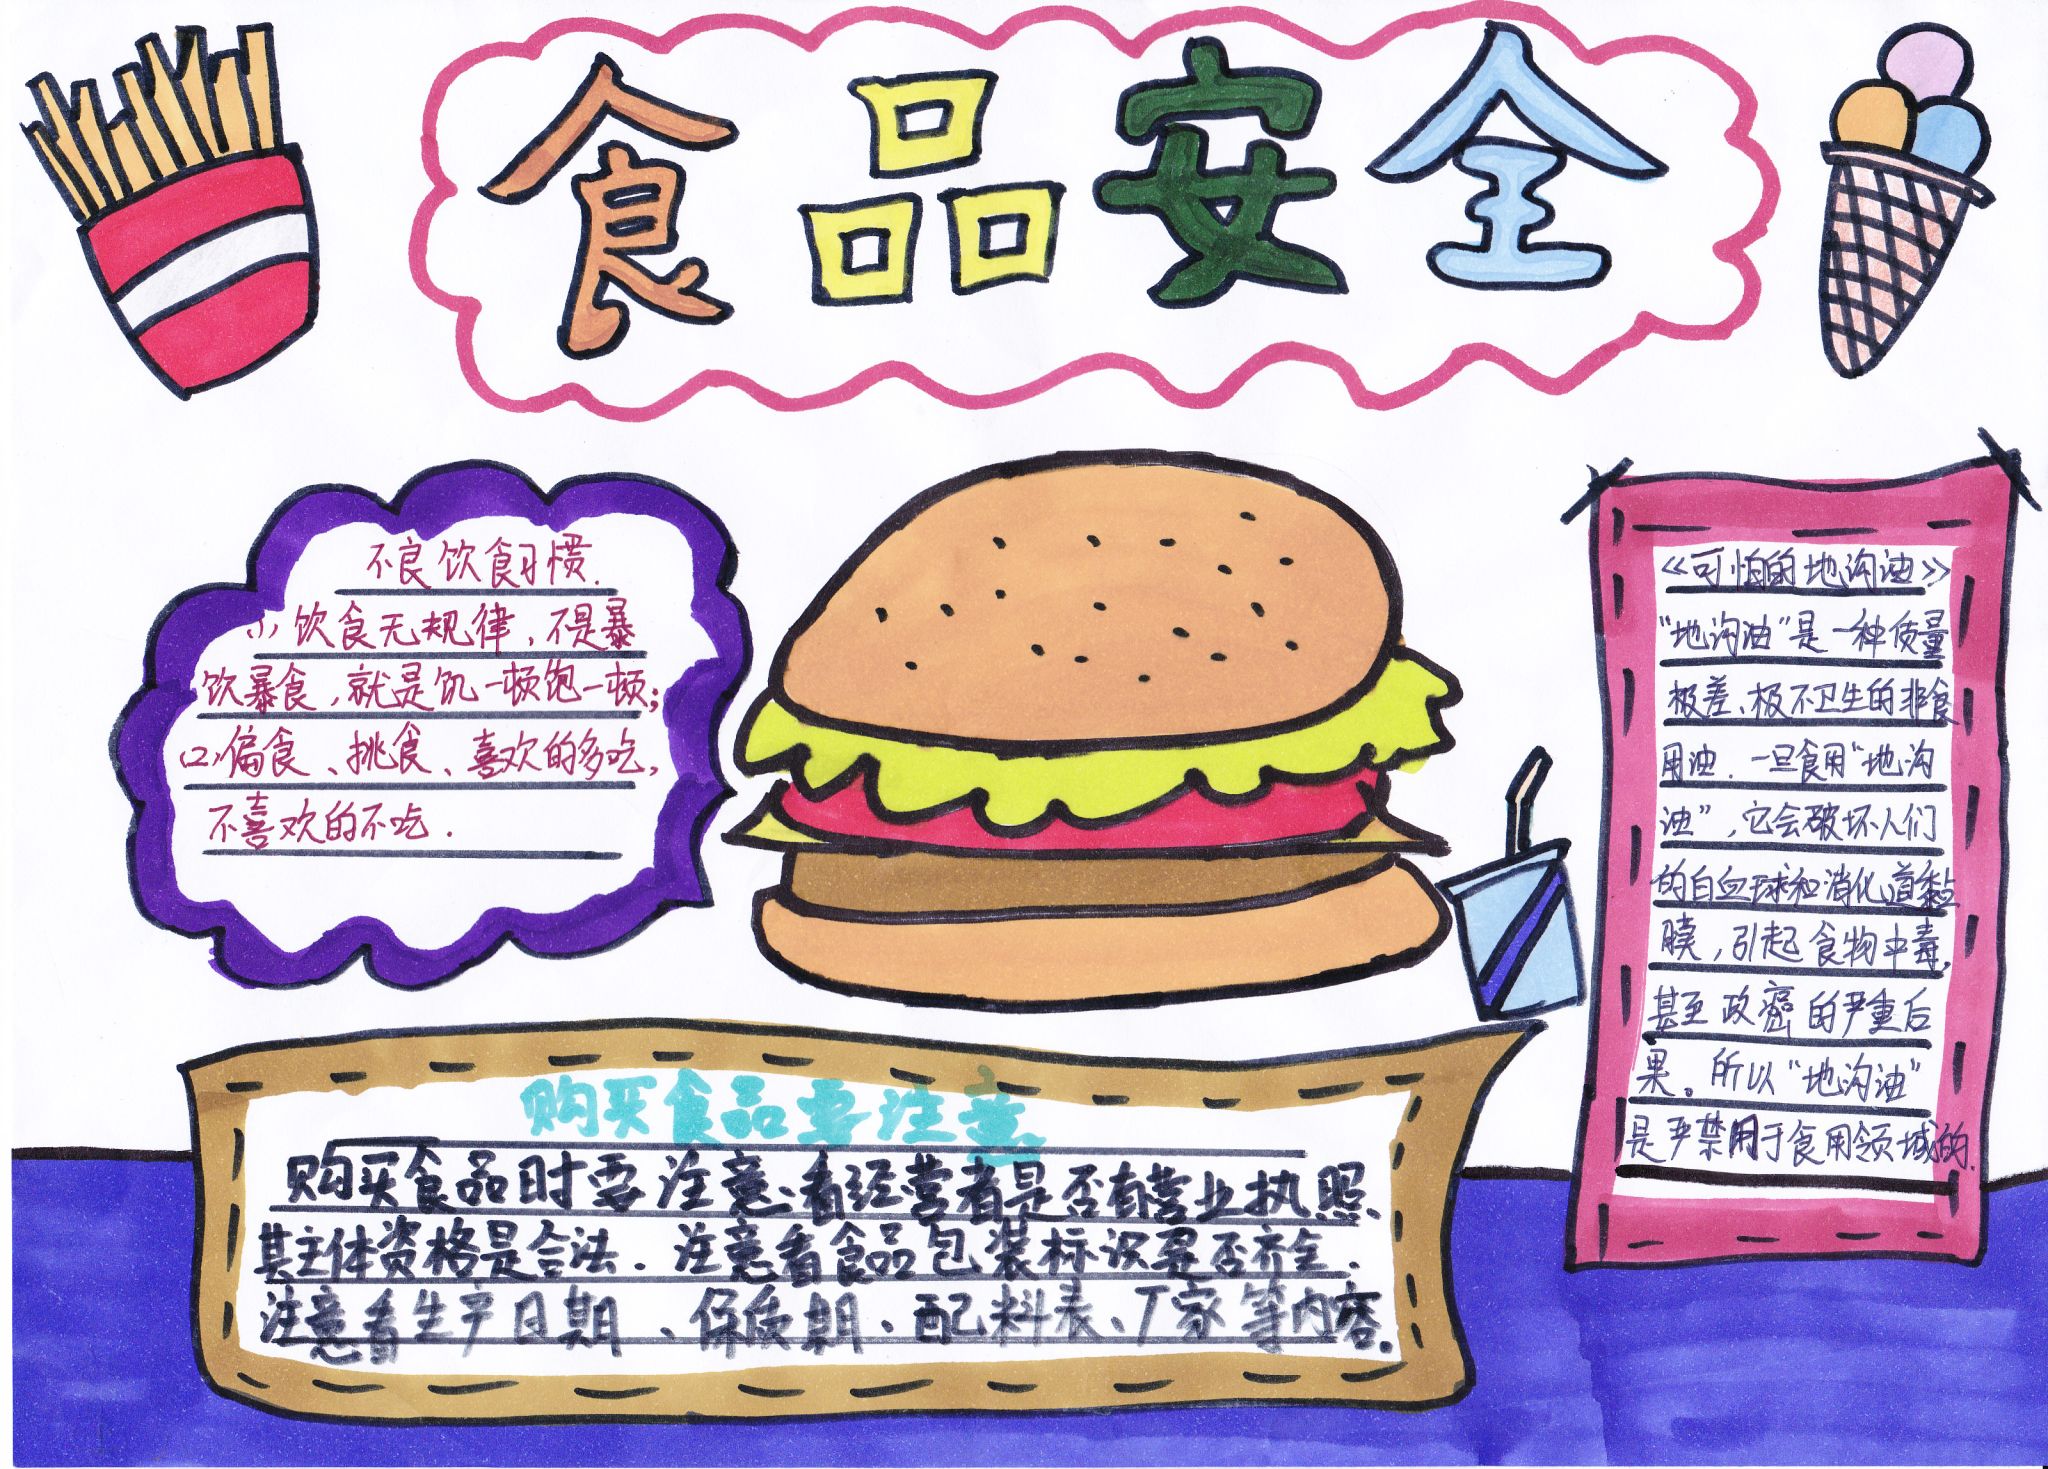 食品安全
不良饮食习惯.
(1)饮食无规律,不是暴
饮暴食,就是饥一顿饱一顿;
(2)偏食、挑食、喜欢的多吃,
不喜欢的不吃.
《可怕的地沟油》
"地沟油"是一种质量
极差、极不卫生的非食
用油.一旦食用"地沟
油",它会破坏人们
的白血球和消化道黏
膜,引起食物中毒,
甚至致癌的严重后
果。所以"地沟油"
是严禁用于食用领域的.
购买食品要注意
购买食品时要注意、看经营者是否有营业执照、
其主体资格是合法.注意看食品包装标识是否齐全.
注意看生产日期、保质期、配料表、厂家等内容.